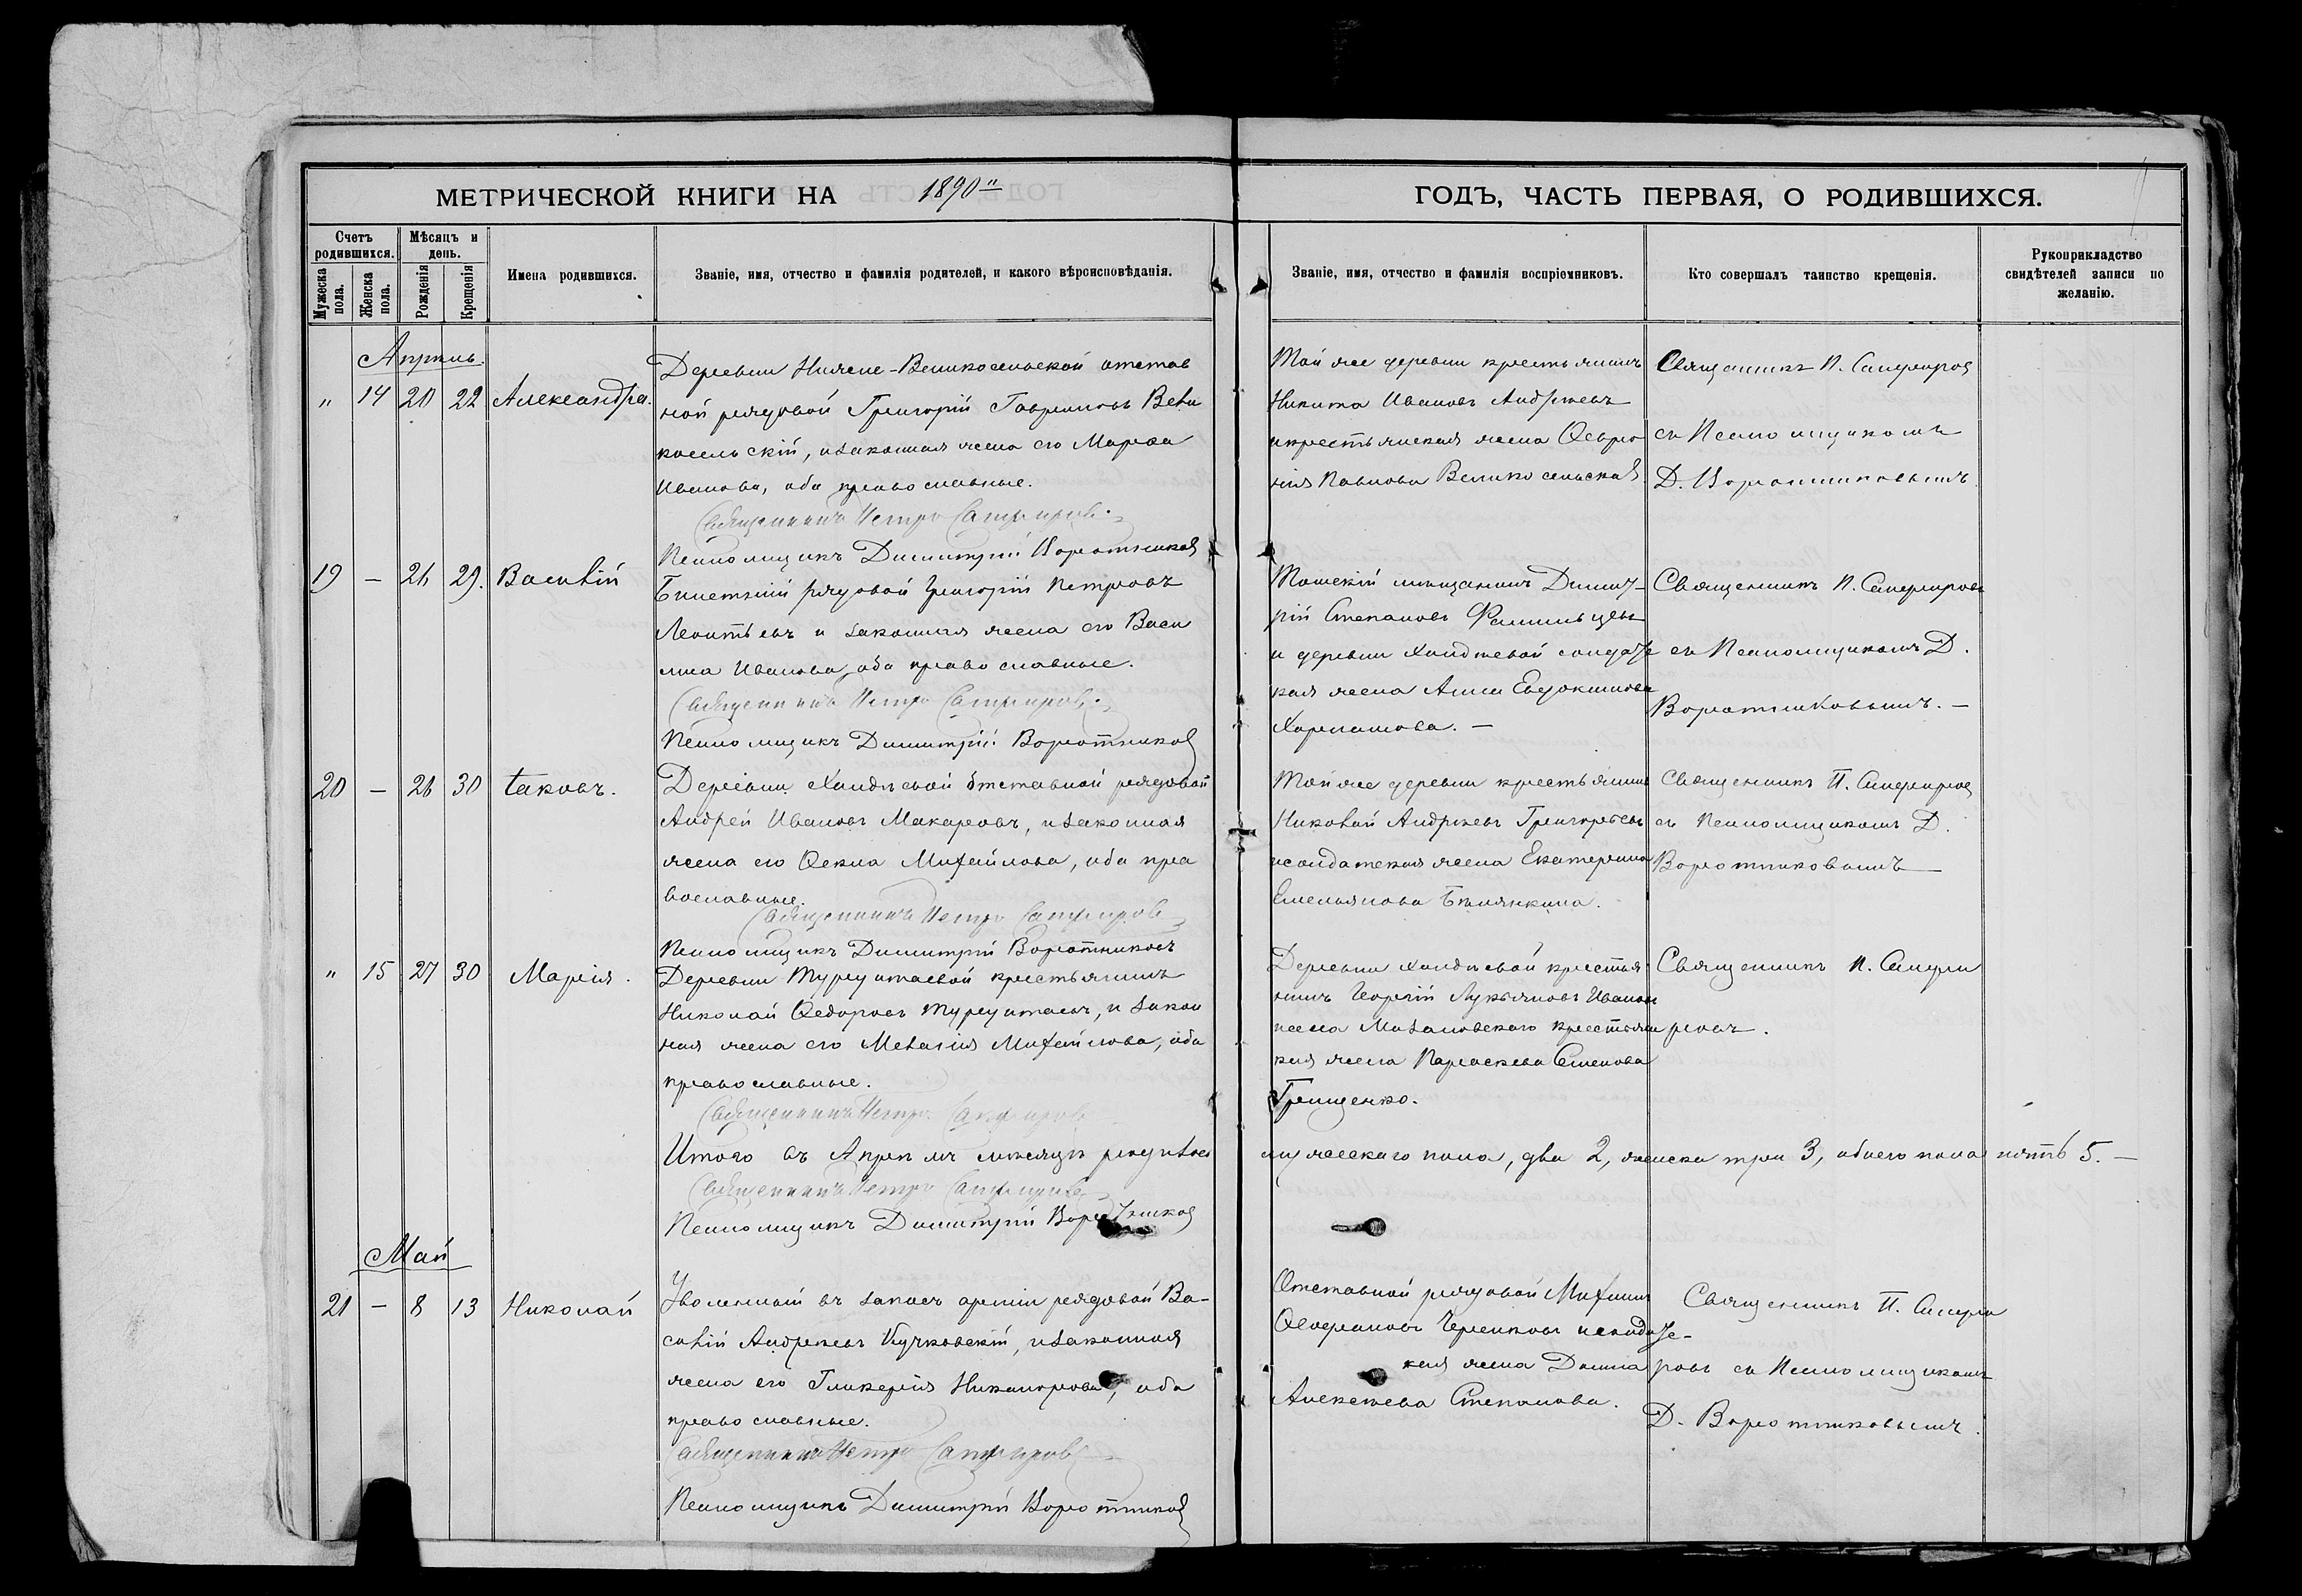 МЕТРИЧЕСКОЙ КНИГИ НА 1890й ГОДЪ, ЧАСТЬ ПЕРВАЯ, О РОДИВШИХСЯ.
Счетъ родившихся.
Мужеска пола.
Женска пола.
Мѣсяцъ и день.
Рожденія
Крещенія
Имена родившихся.
Званіе, имя, отчество и фамилія родителей, и какого вѣроисповѣданія.
Званіе, имя, отчество и фамилія воспріемниковъ.
Кто совершалъ таинство крещенія.
Рукоприкладство свидѣтелей записи по желанію.
Апрѣль.
" 14 20 22 Александра.
Деревни Нижне-Великосельской отстав
ной рядовой Григорій Гавриловъ Вели
косельскій, и законная жена его Марѳа
Иванова, оба православные.
Священникъ Петръ Сапфировъ.
Псаломщикъ Димитрій Воротниковъ
Той же деревни крестьянинъ
Никита Ивановъ Андреевъ
и крестьянская жена Ѳевро
нія Павлова Великосельская
Священникъ П. Сапфировъ
съ Псаломщикомъ
Д. Воротниковымъ.
19 — 26 29. Василій
Билетный рядовой Григорій Петровъ
Леонтьевъ и законная жена его Васи
лиса Иванова, оба православные.
Священникъ Петръ Сапфировъ.
Псаломщикъ Димитрій Воротниковъ
Томскій мѣщанинъ Димит-
рій Степановъ Фамильцевъ
и деревни Халдѣевой солдатс
кая жена Анна Евдокимова
Харламова. —
Священникъ П. Сапфировъ
съ Псаломщикомъ Д.
Воротниковымъ. —
20 — 26 30 Іаковъ.
Деревни Халдѣевой отставной рядовой
Андрей Ивановъ Макаровъ, и законная
жена его Ѳекла Михайлова, оба пра
вославные.
Священникъ Петръ Сапфировъ
Псаломщикъ Димитрій Воротниковъ
Той же деревни крестьянинъ
Николай Андреевъ Григорьевъ
и солдатская жена Екатерина
Емельянова Бѣлянкина.
Священникъ П. Сапфировъ
съ Псаломщикомъ Д.
Воротниковымъ —
" 15 27 30 Марія.
Деревни Турунтаевой крестьянинъ
Николай Ѳедоровъ Турунтаевъ, и закон
ная жена его Меланія Михайлова, оба
православные.
Священникъ Петръ Сапфировъ
Деревни Халдѣевой крестья
нинъ Георгій Лукьяновъ Ивановъ
кая жена Параскева Семенова
Грищенко.
Священникъ П. Сапфи
ровъ.
Итого въ Апрѣлѣ мѣсяцѣ родилось мужескаго пола, два 2, женска три 3, обоего пола пять 5. —
Священникъ Петръ Сапфировъ
Псаломщикъ Димитрій Воротниковъ
Май
21 — 8 13 Николай
Уволенный въ запасъ арміи рядовой Ва-
силій Андреевъ Кучковскій, и законная
жена его Гликерія Никанорова, оба
православные.
Священникъ Петръ Сапфировъ
Псаломщикъ Димитрій Воротниковъ
Отставной рядовой Михаилъ
кая жена Домна
Алексѣева Степанова.
Священникъ П. Сапфи
ровъ съ Псаломщикомъ
Д. Воротниковымъ.